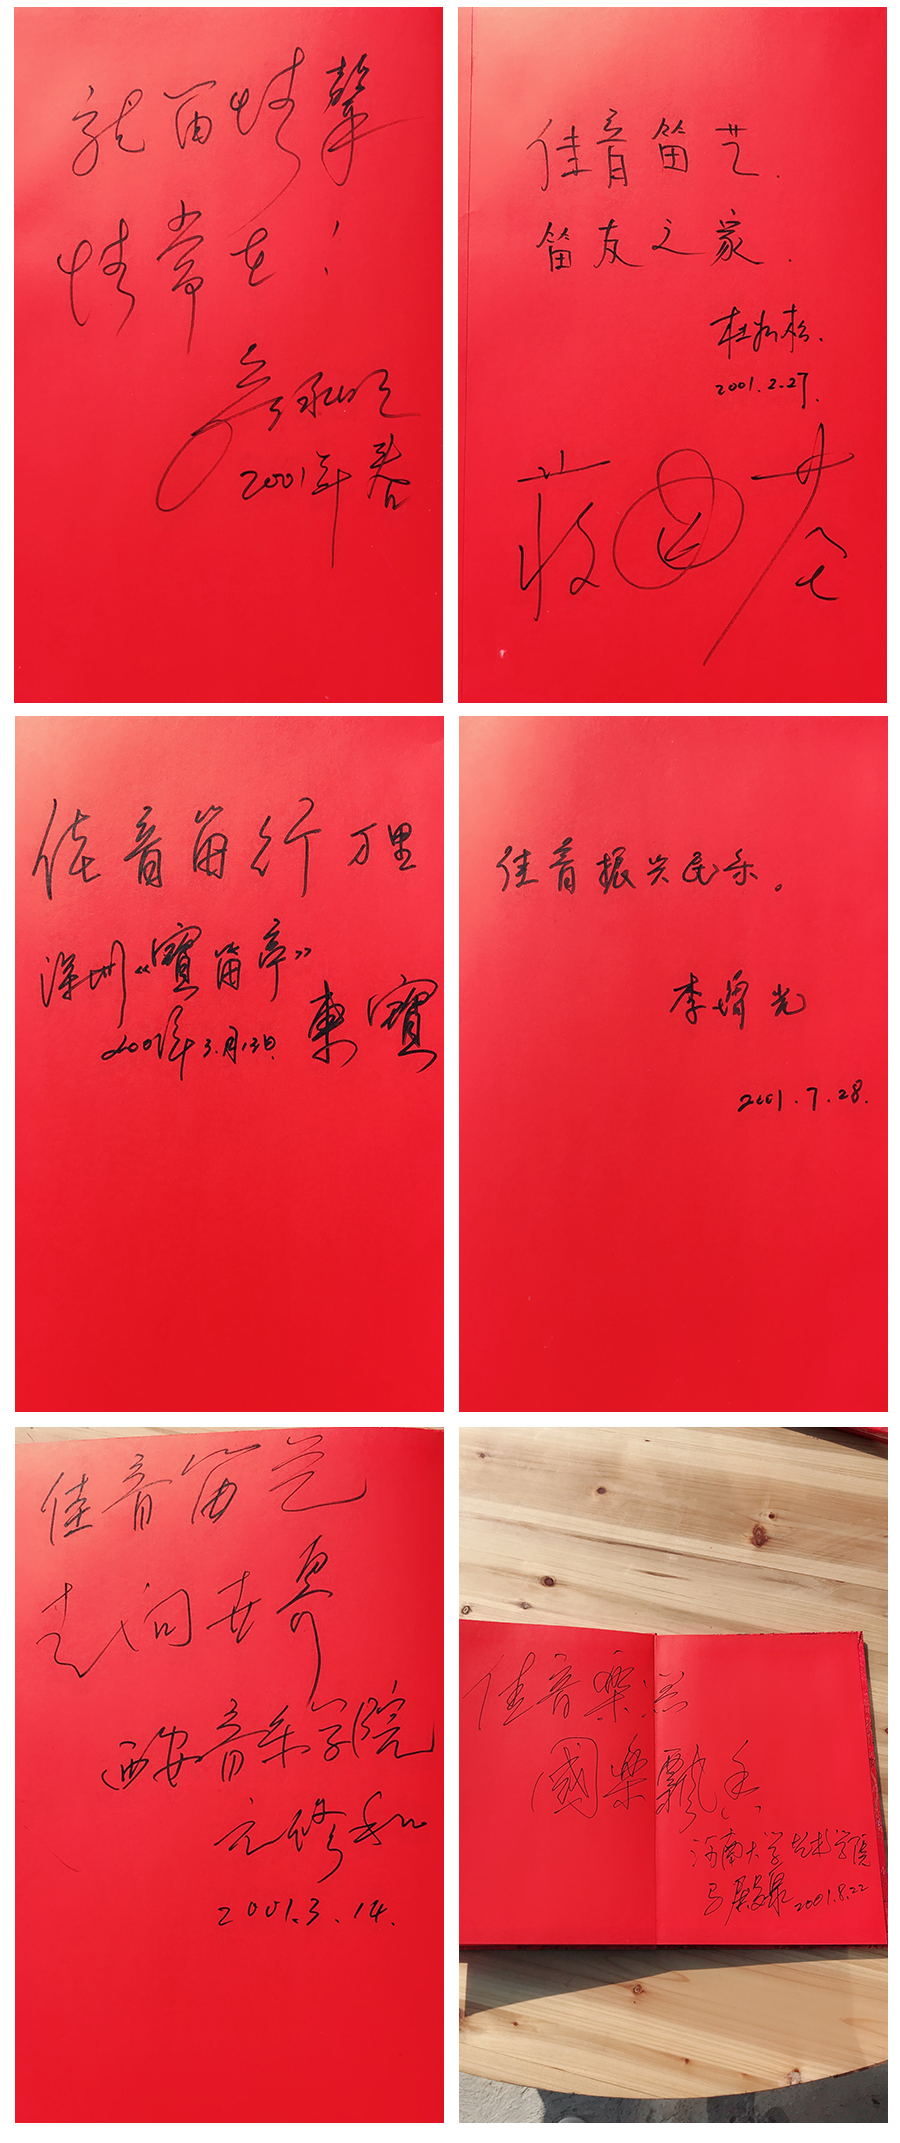 笛情
情常在！
詹永明
2001年春
佳音笛艺.
笛友之家.
杜如松.
2001.2.27.
蒋国基
佳音笛行万里
深圳《寶笛亭》
東寶
2001年3月13日
佳音振兴民乐。
李增光
2001.7.28.
佳音笛艺
走向世界
西安音乐学院
元修和
2001.3.14.
佳音樂器
國樂飄香
河南大学艺术学院
马 2001.8.22